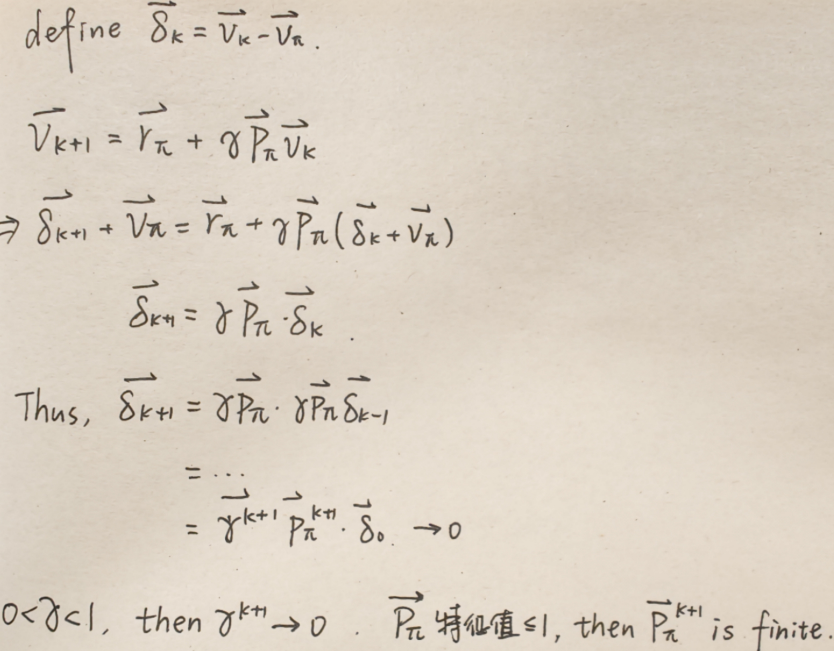 define $\vec{\delta}_k = \vec{v}_k - \vec{v}_\pi$.
$\vec{v}_{k+1} = \vec{r}_\pi + \gamma \vec{P}_\pi \vec{v}_k$
$\Rightarrow \vec{\delta}_{k+1} + \vec{v}_\pi = \vec{r}_\pi + \gamma \vec{P}_\pi (\vec{\delta}_k + \vec{v}_\pi)$
$\vec{\delta}_{k+1} = \gamma \vec{P}_\pi \cdot \vec{\delta}_k$.
Thus, $\vec{\delta}_{k+1} = \gamma \vec{P}_\pi \cdot \gamma \vec{P}_\pi \vec{\delta}_{k-1}$
$= \cdots$
$= \vec{\gamma}^{k+1} \vec{P}_\pi^{k+1} \cdot \vec{\delta}_0. \to 0$
$0 < \gamma < 1$, then $\gamma^{k+1} \to 0$. $\vec{P}_\pi$ 特征值 $\leq 1$, then $\vec{P}_\pi^{k+1}$ is finite.